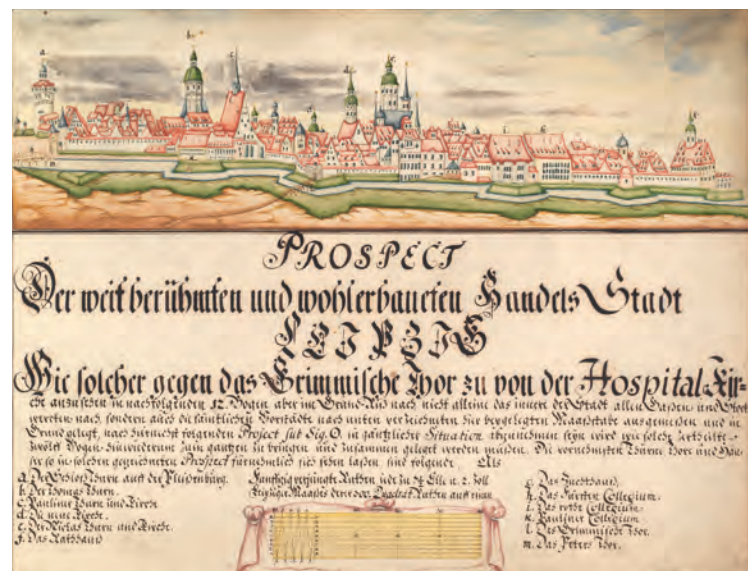 PROSPECT
Der weit berühmten und wohlerbaueten Handels Stadt
LEIPZIG
Wie solcher gegen das Grimmische Thor zu von der Hospital-Kir-
che anzusehen in nachfolgenden 12. Bogen aber im Grund-Riß nach nicht alleine das innere der Stadt allen Gassen und
nach, sondern auch die sämtlichen Vorstädte nach unten verzeichneten hie beygelegten Maasstabe ausgemessen und in
Grund gelegt, nach folgenden Project sub Sig. O. in gäntzlicher Situation abzunehmen seyn wird wie solche
zwölff Bogen hinwiederum zum gantzen zu bringen und zusammen gelegt werden müssen. Die vornehmsten Thürme Thor und Häu-
ser so in solchen gezeichneten Prospect fürnehmlich sich sehen laßen sind folgende Als
a. Der Schloß Thurn auf der Pleißenburg.
b. Der Thomas Thurn.
c. Pauliner Thurn und Kirche
d. Die neue Kirche.
e. Der Nicolas Thurn und Kirche.
f. Das Rathhaus
Funfftzig verjüngte Ruthen jede zu 7¾ Elle u. 2. Zoll
Leipziger Maaßes derer 200. Quadrat Ruthen auf einen
g. Das Zuchthaus.
h. Das Fürsten Collegium.
i. Das rothe Collegium.
k. Pauliner Collegium
l. Das Grimmische Thor.
m. Das Peters Thor.